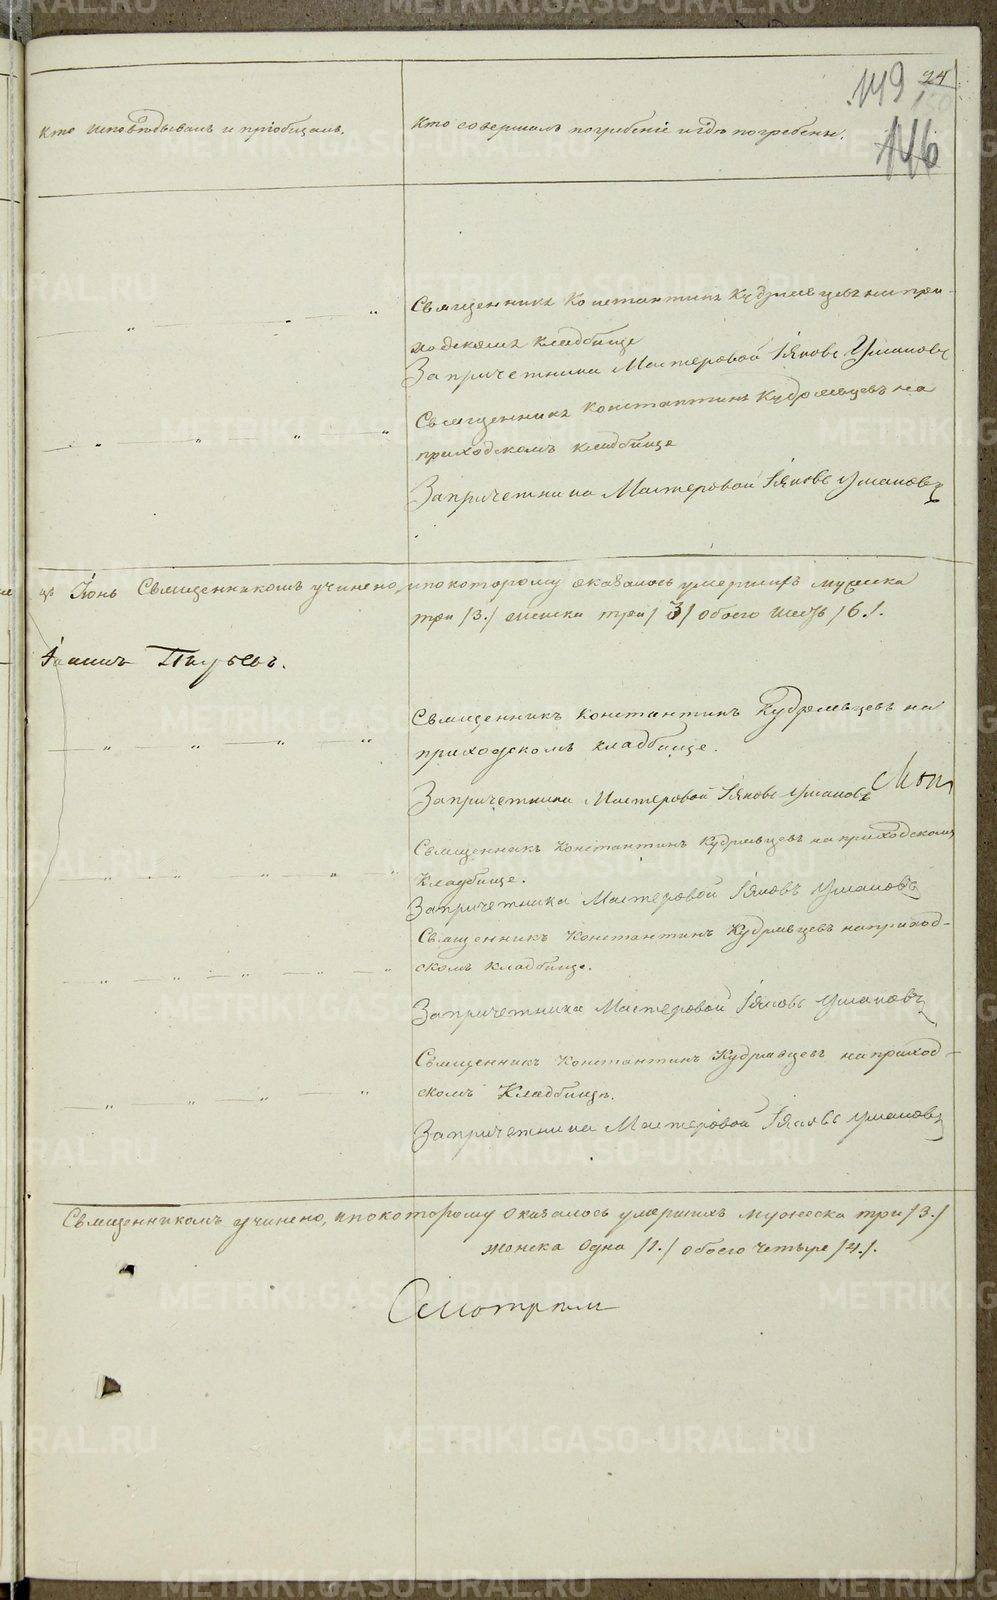 24
149
150
146
Кто исповѣдывалъ и пріобщалъ.
Кто совершалъ погребеніе и гдѣ погребены.
Священникъ Константинъ Кудрявцевъ на при-
ходскомъ кладбище
За причетника Мастеровой Іяковъ Ушаковъ
Священникъ Константинъ Кудрявцевъ на
приходскомъ кладбище
За причетника Мастеровой Іяковъ Ушаковъ
Іюнь Священникомъ учинено, и по которому оказалось умершихъ мужеска
три /3./ женска три /3/ обоего шесть /6./.
Священникъ Константинъ Кудрявцевъ на
приходскомъ кладбище.
За причетника Мастеровой Іяковъ Ушаковъ
Священникъ Константинъ Кудрявцевъ на приходскомъ
кладбище.
За причетника Мастеровой Іяковъ Ушаковъ
Священникъ Константинъ Кудрявцевъ на приход-
скомъ кладбище.
За причетника Мастеровой Іяковъ Ушаковъ
Священникъ Константинъ Кудрявцевъ на приход-
скомъ Кладбище.
За причетника Мастеровой Іяковъ Ушаковъ
Священникомъ учинено, и по которому оказалось умершихъ мужеска три /3./
женска одна /1./ обоего четыре /4./.
Смотрели
METRIKI.GASO-URAL.RU